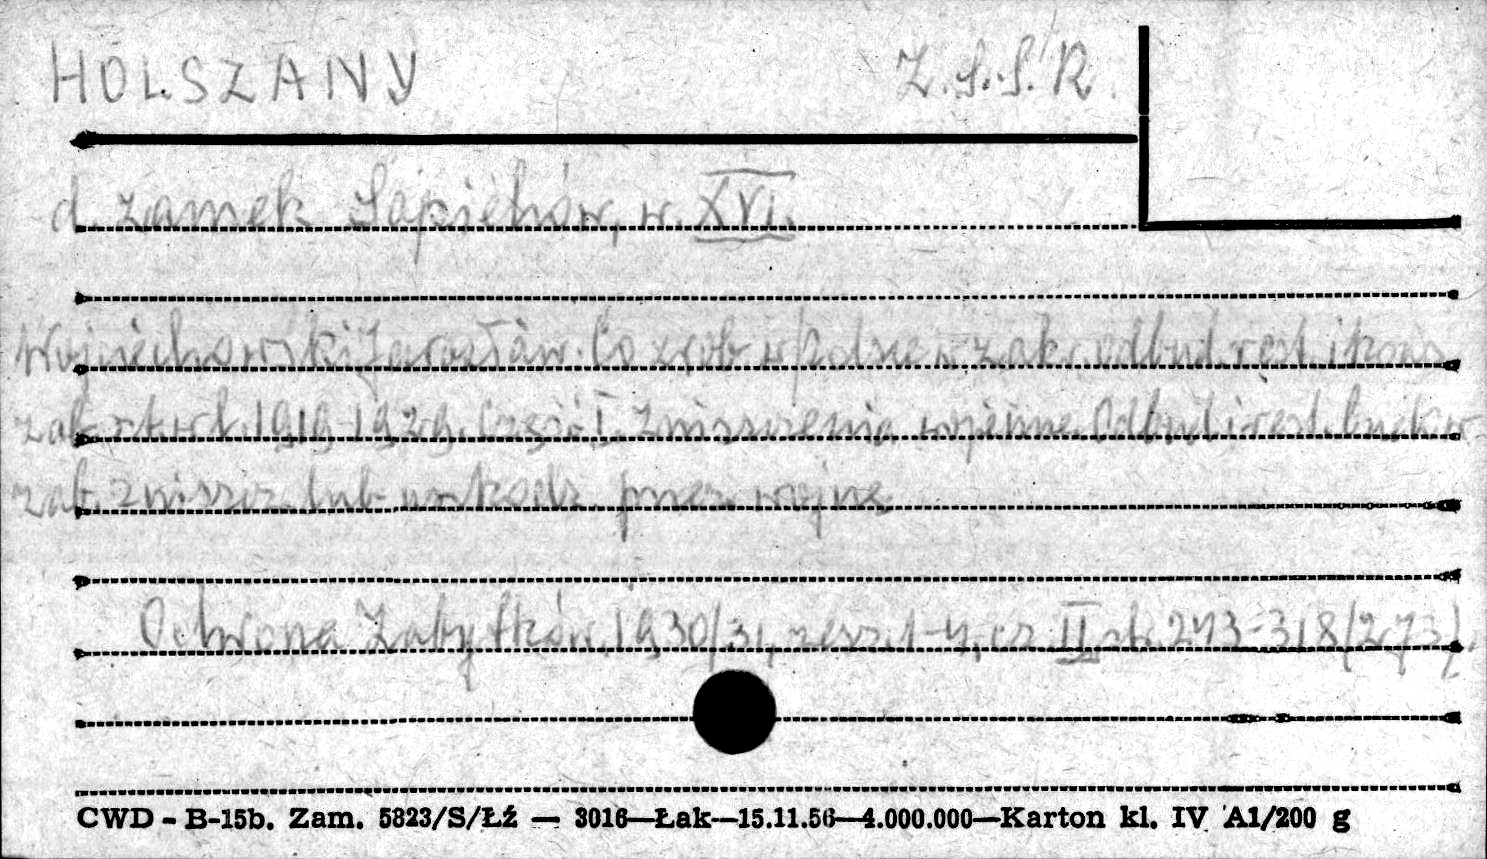 HOLSZANY Z.S.S.R.
d. zamek Sapiehów, w. XVI.
Wojciechowski Jarosław. Co zrob. w Polsce w zakr. odbud. rest. i kons.
zab. w l. 1919-1929. Część I. Zniszczenia wojenne. Odbud. i rest. bud. w
zab. zniszcz. lub uszkodz. przez wojnę
Ochrona Zabytków, 1930/31, zesz. 1-4, cz. II st. 243-318/273/.
CWD - B-15b. Zam. 5823/S/Łź — 3016—Łak—15.11.56—4.000.000—Karton kl. IV A1/200 g